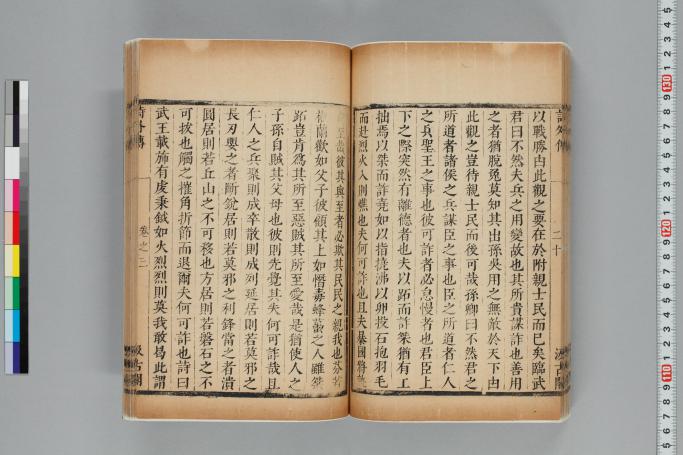 詩外傳
二十
汲古閣
以戰勝由此觀之要在於附親士民而已矣臨武
君曰不然夫兵之用變故也其所貴謀詐也善用
之者猶脫兔莫知其出孫吳用之無敵於天下由
此觀之豈待親士民而後可哉孫卿曰不然君之
所道者諸侯之兵謀臣之事也臣之所道者仁人
之兵聖王之事也彼可詐者必怠慢者也君臣上
下之際突然有離德者也夫以跖而詐桀猶有工
拙焉以桀而詐堯如以指撓沸以卵投石抱羽毛
而赴烈火入則燋也夫何可詐也且夫暴國將孰
至哉彼其與至者必欺其民民之親我也芬若
椒蘭歡如父子彼顧其上如憯毒蜂蠆之人雖桀
跖豈肯爲其所至惡賊其所至愛哉是猶使人之
子孫自賊其父母也彼則先覺其失何可詐哉且
仁人之兵聚則成卒散則成列延居則若莫邪之
長刃嬰之者斷銳居則若莫邪之利鋒當之者潰
圓居則若丘山之不可移也方居則若磐石之不
可拔也觸之摧角折節而退爾夫何可詐也詩曰
武王載斾有虔秉鉞如火烈烈則莫我敢曷此謂
詩外傳
卷之三
汲古閣
130
120
110